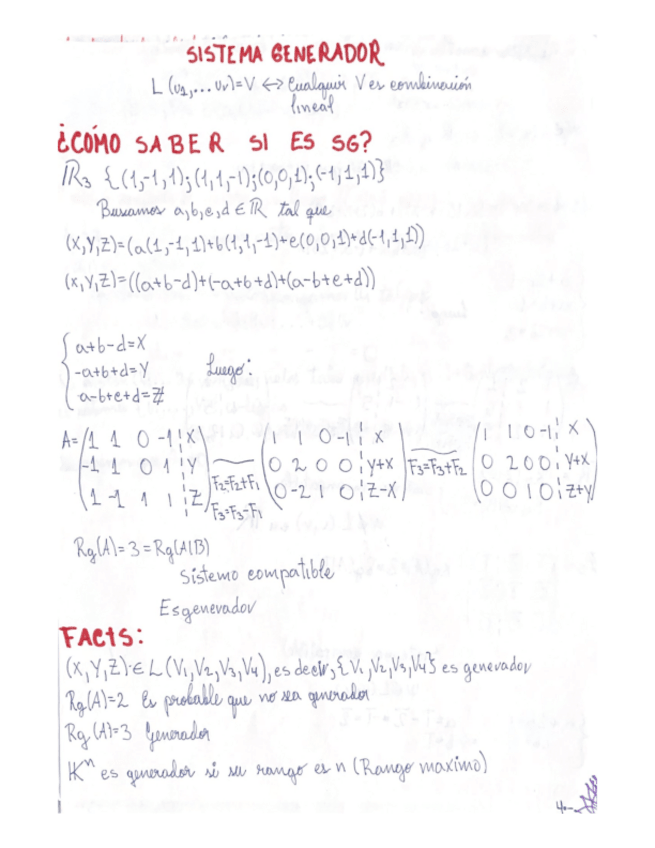 SISTEMA GENERADOR
L (v1,... vr)=V ↔ Cualquier V es combinación
lineal
¿CÓMO SABER SI ES SG?
IR3 {(1,-1,1);(1,1,-1);(0,0,1);(-1,1,1)}
Buscamos a,b,c,d ∈ IR tal que
(X,Y,Z)=(a(1,-1,1)+b(1,1,-1)+c(0,0,1)+d(-1,1,1))
(X,Y,Z)=((a+b-d)+(-a+b+d)+(a-b+c+d))
a+b-d=X
-a+b+d=Y Luego:
a-b+c+d=Z
A= 1 1 0 -1 | X 1 1 0 -1 | X 1 1 0 -1 | X
-1 1 0 1 | Y F2=F2+F1 0 2 0 0 | Y+X F3=F3+F2 0 2 0 0 | Y+X
1 -1 1 1 | Z F3=F3-F1 0 -2 1 0 | Z-X 0 0 1 0 | Z+Y
Rg(A)=3=Rg(A|B)
Sistema compatible
Es generador
FACTS:
(X,Y,Z)∈L(V1,V2,V3,V4), es decir, {V1,V2,V3,V4} es generador
Rg(A)=2 Es probable que no sea generador
Rg(A)=3 Generador
IKn es generador si su rango es n (Rango maximo)